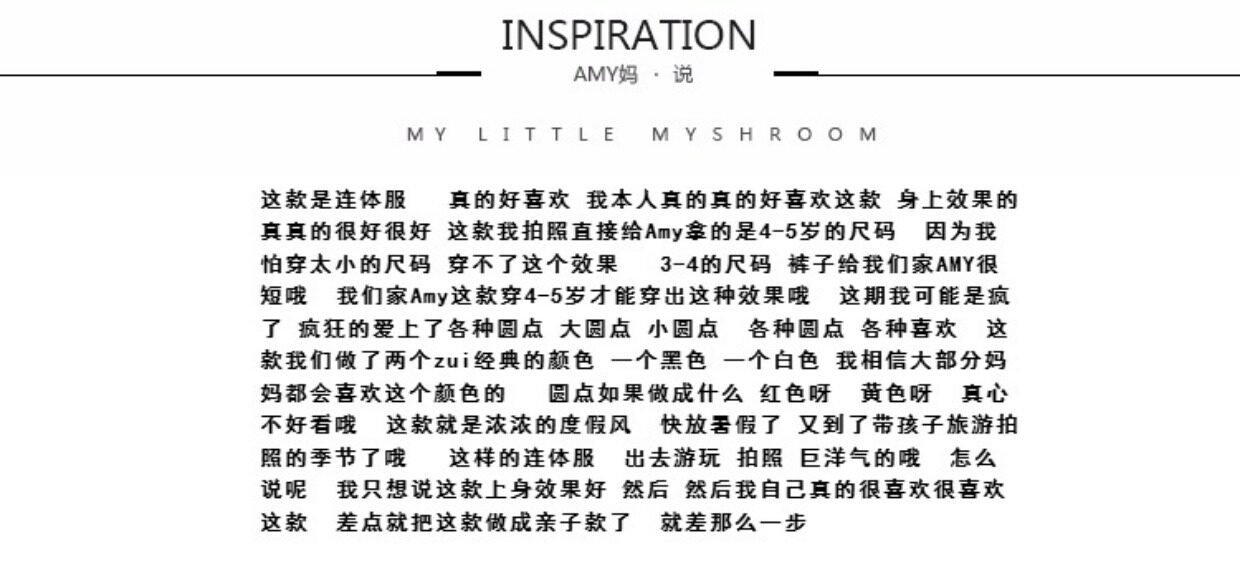 INSPIRATION
AMY妈 · 说
MY LITTLE MYSHROOM
这款是连体服 真的好喜欢 我本人真的真的好喜欢这款 身上效果的
真真的很好很好 这款我拍照直接给Amy拿的是4-5岁的尺码 因为我
怕穿太小的尺码 穿不了这个效果 3-4的尺码 裤子给我们家AMY很
短哦 我们家Amy这款穿4-5岁才能穿出这种效果哦 这期我可能是疯
了 疯狂的爱上了各种圆点 大圆点 小圆点 各种圆点 各种喜欢 这
款我们做了两个zui经典的颜色 一个黑色 一个白色 我相信大部分妈
妈都会喜欢这个颜色的 圆点如果做成什么 红色呀 黄色呀 真心
不好看哦 这款就是浓浓的度假风 快放暑假了 又到了带孩子旅游拍
照的季节了哦 这样的连体服 出去游玩 拍照 巨洋气的哦 怎么
说呢 我只想说这款上身效果好 然后 然后我自己真的很喜欢很喜欢
这款 差点就把这款做成亲子款了 就差那么一步